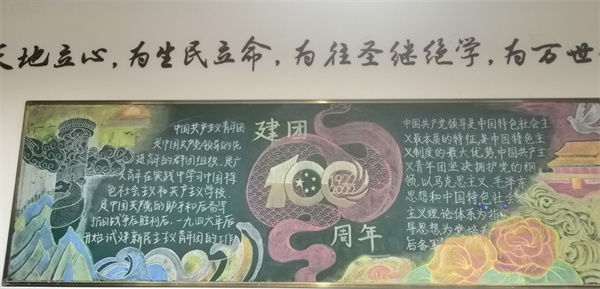 天地立心，为生民立命，为往圣继绝学，为万世
建团
100
1922
2022
周年
中国共产主义青年团
是中国共产党领导的先
进青年的群团组织，是广
大青年在实践中学习中国特
色社会主义和共产主义学校
是中国共产党的助手和后备军
抗日战争后胜利后，一九四六年后
开始试建新民主主义青年团的工作
中国共产党领导是中国特色社会主
义最本质的特征，是中国特色社会主
义制度的最大优势，中国共产主
义青年团坚决拥护党的纲
领，以马克思主义、毛泽东
思想和中国特色社会
主义理论体系为指
导思想为党
后备军